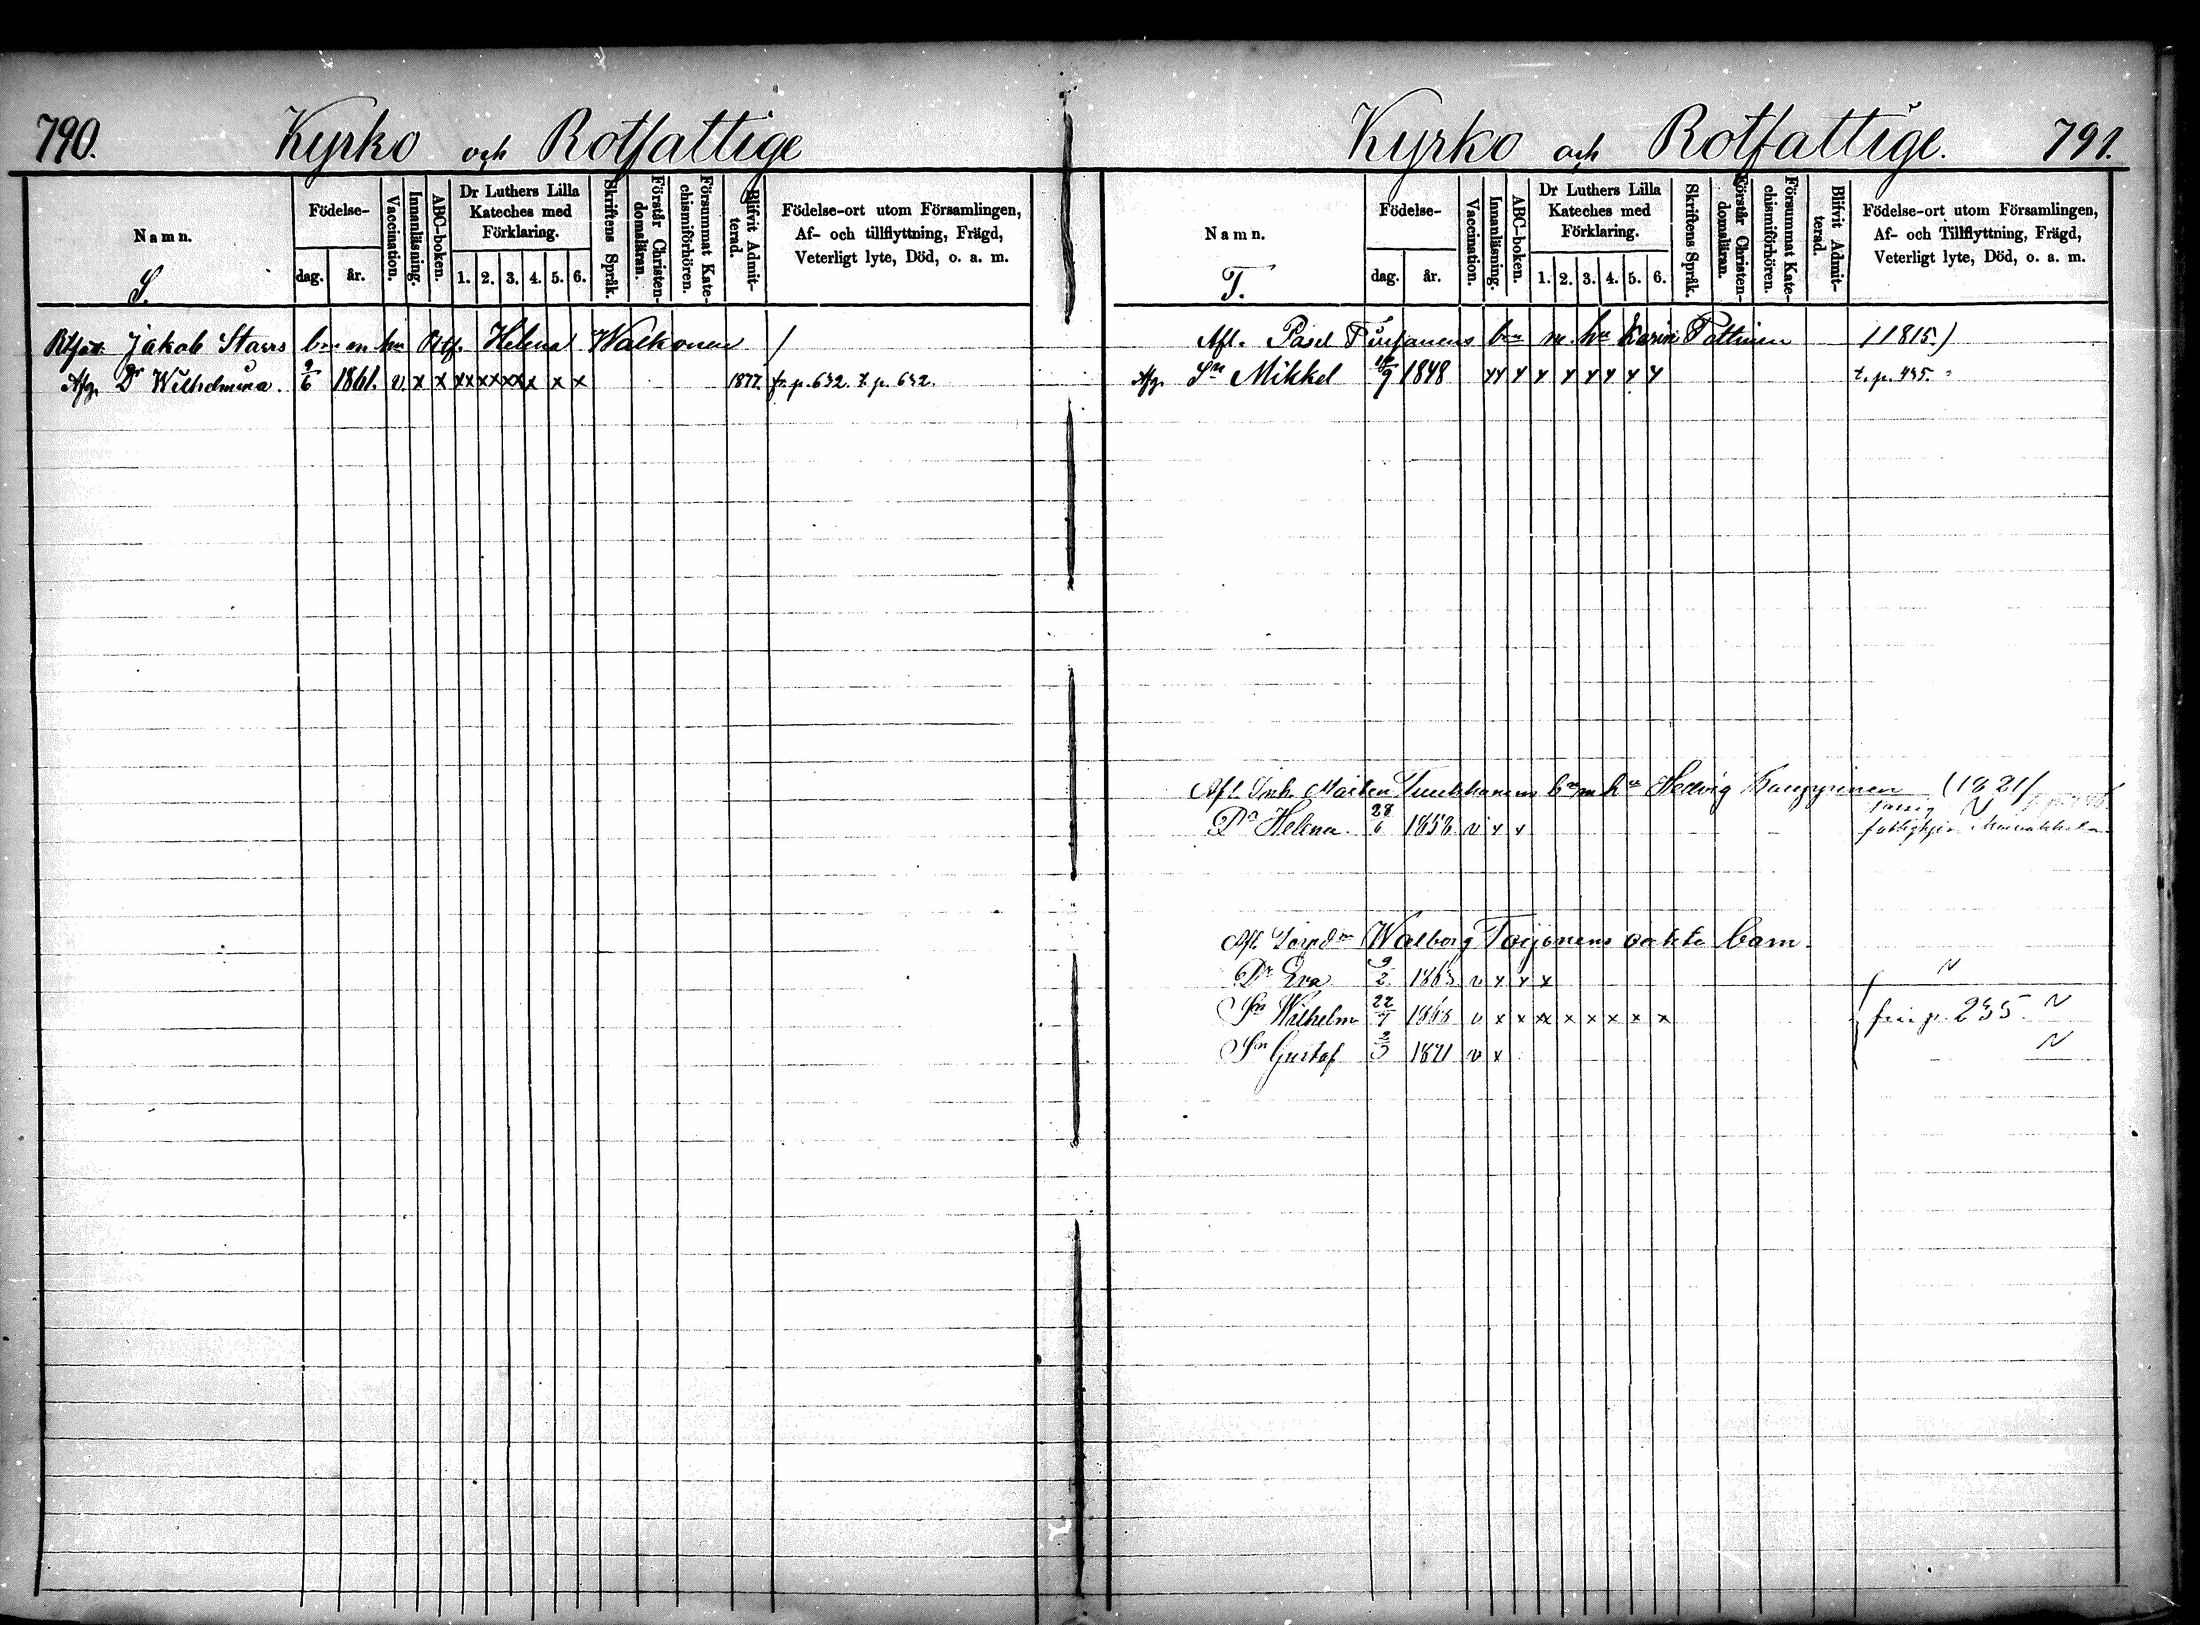 790. Kyrko och Rotfattige
Namn.
S.
Födelse-
dag. år.
Vaccination.
Innanläsning.
ABC-boken.
Dr Luthers Lilla
Kateches med
Förklaring.
1. 2. 3. 4. 5. 6.
Skriftens Språk.
Förstår Christen-
domsläran.
Försummat Kate-
chismiförhören.
Blifvit Admit-
terad.
Födelse-ort utom Församlingen,
Af- och tillflyttning, Frägd,
Veterligt lyte, Död, o. a. m.
Jakob Starrs bn m hu Helena Walkonen /
Afg. Dr Wilhelmina. 9/6 1861. v x x x x x x x x x x 1877 fr. p. 632. t. p. 632.
Kyrko och Rotfattige. 791.
Namn.
T.
Födelse-
dag. år.
Vaccination.
Innanläsning.
ABC-boken.
Dr Luthers Lilla
Kateches med
Förklaring.
1. 2. 3. 4. 5. 6.
Skriftens Språk.
Förstår Christen-
domsläran.
Försummat Kate-
chismiförhören.
Blifvit Admit-
terad.
Födelse-ort utom Församlingen,
Af- och Tillflyttning, Frägd,
Veterligt lyte, Död, o. a. m.
Afl. Pavel bn m. hu Karin Pattinen (1815)
Afg. Sn Mikkel 1848 x x x x x x x x x t. p. 435.
Afl. Inh. bn m hu Hedvig Kauppinen (1821)
Dr Helena. 28/6 1858 v x x N
Afl. Walborg Toijonens oäkta barn.
Dr Eva 9/2 1863 v x x x N
Sn Wilhelm 22/7 1868 v x x x x x x x x x p. 235. N
Sn Gustaf 2/3 1871 v x N